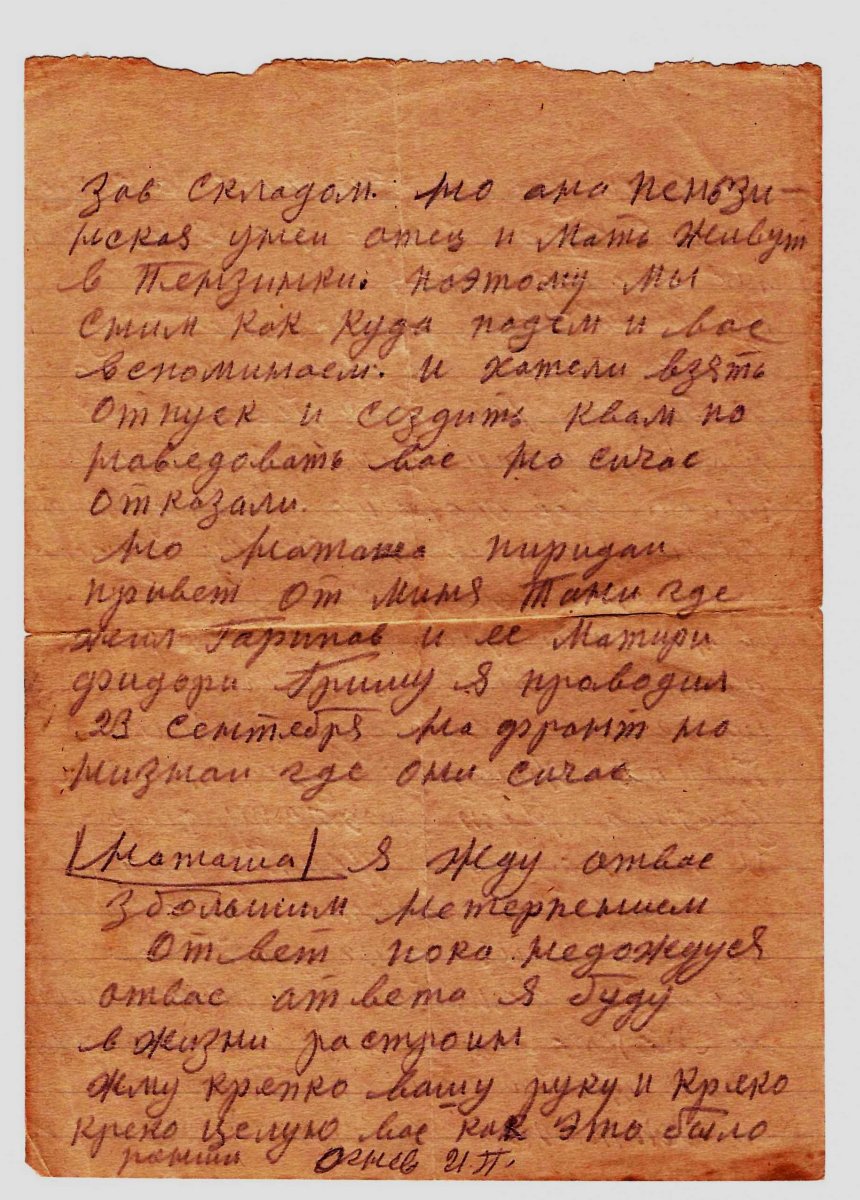 зав складом. но ана пеньзи-
нская уней отец и мать живут
в Пензинки. поэтому мы
сним как куда подём и вас
вспоминаем. и хотели взять
отпуск и создить квам по
наведовать вас но сичас
отказали.
но Наташа пиридай
привет от миня Тани где
жил Гарипов и ее матири
фидори Гришу я проводил
23 сентября на фронт но
низнаи где они сичас
|Наташа| я жду отвас
збольшим нетерпением
ответ пока недождуся
отвас атвета я буду
в жизни растроин
жму крепко вашу руку и кряко
креко целую вас как это было
раньши Огнев И П.